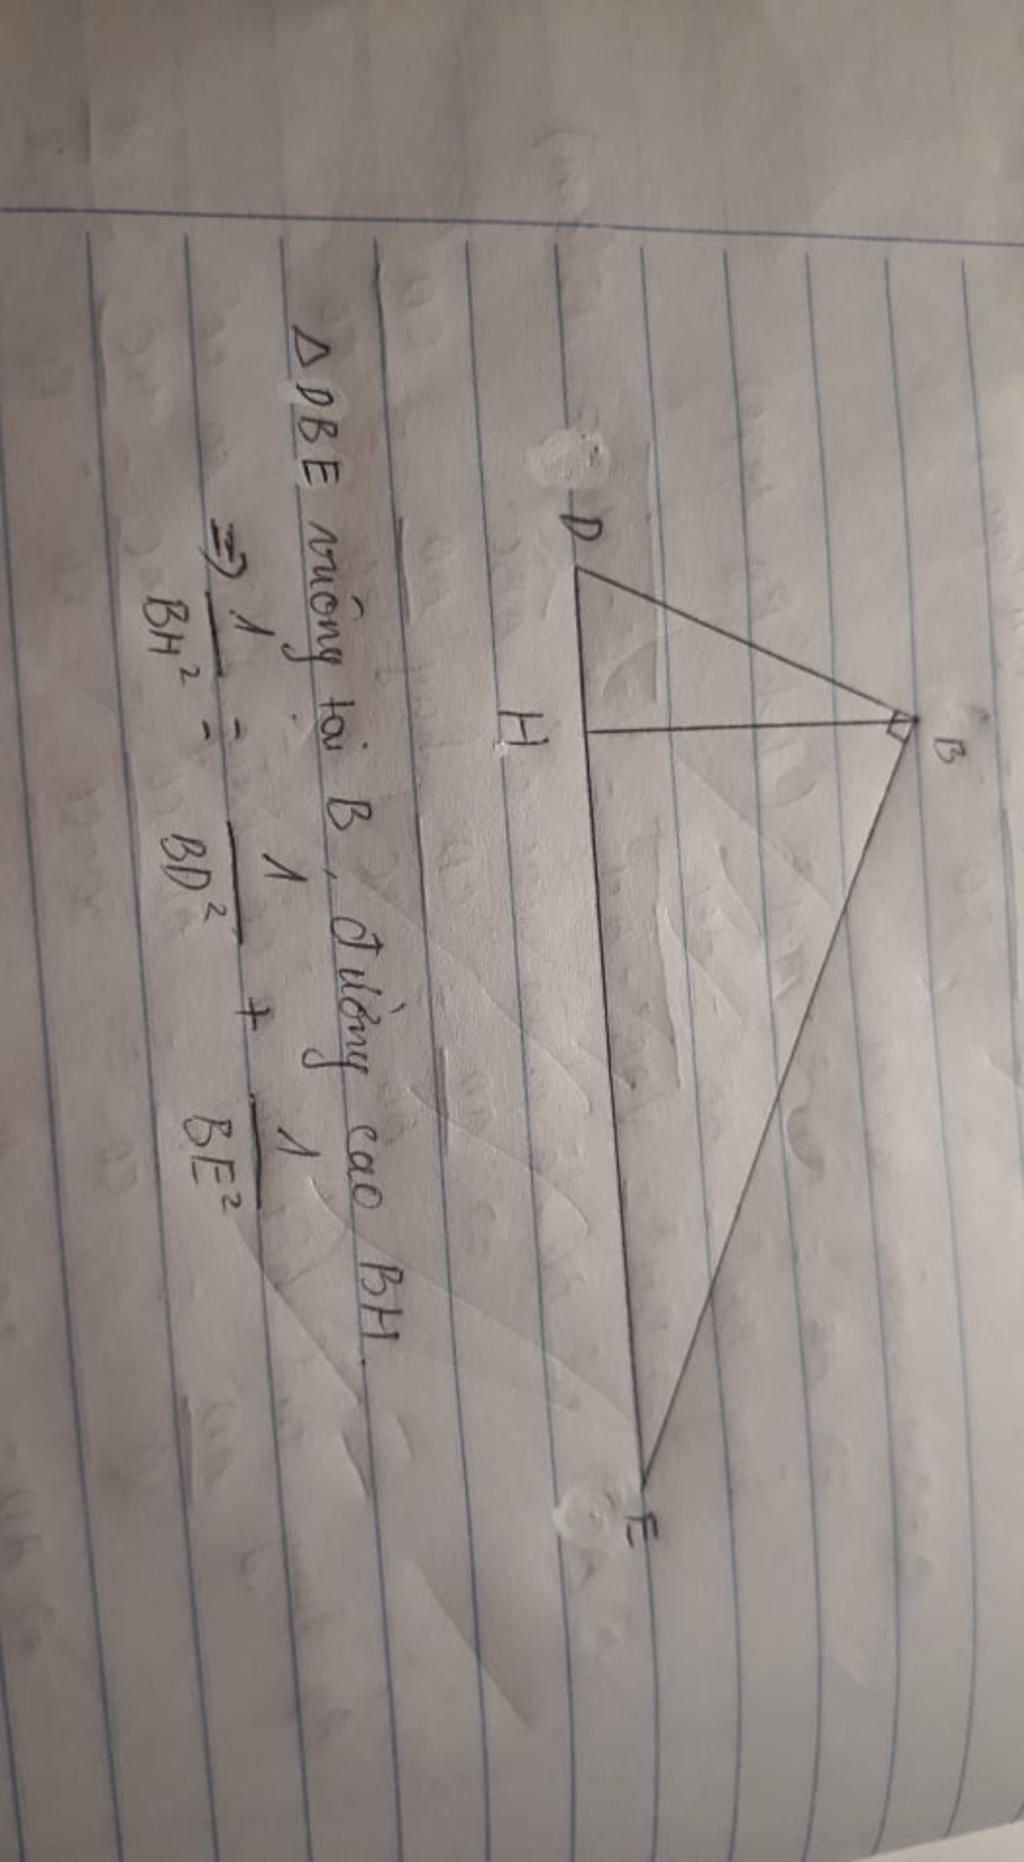 B
D
H
E
Δ DBE vuông tại B, đường cao BH
⇒ 1/BH² = 1/BD² + 1/BE²